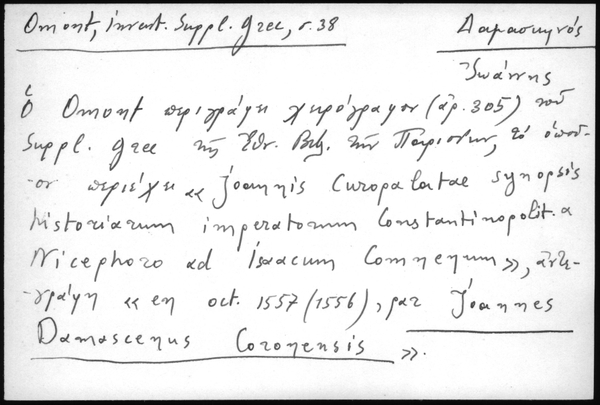 Omont, invent. Suppl. grec, σ. 38
Δαμασκηνός
Ἰωάννης
ὁ Omont περιγράφει χειρόγραφον (ἀρ. 305) τοῦ
Suppl. grec τῆς Ἐθν. Βιβ. τῶν Παρισίων, τὸ ὁποῖ-
-ον περιέχει « Joannis Curopalatae synopsis
historiarum imperatorum Constantinopolit. a
Nicephoro ad Isaacum Comnenum », ἀντε-
-γράφη « en oct. 1557 (1556), par Joannes
Damascenus Coronensis ».